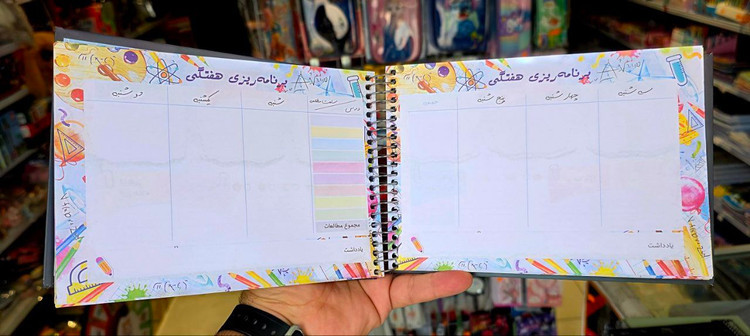 برنامه ریزی هفتگی
شنبه
یکشنبه
دوشنبه
مجموع مطالعات
یادداشت
برنامه ریزی هفتگی
سه شنبه
چهارشنبه
پنج شنبه
یادداشت